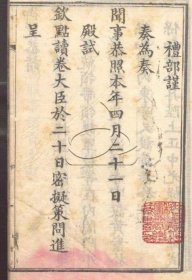 禮部謹
奏為奏
聞事恭照本年四月二十一日
殿試
欽點讀卷大臣於二十日密擬策問進
呈